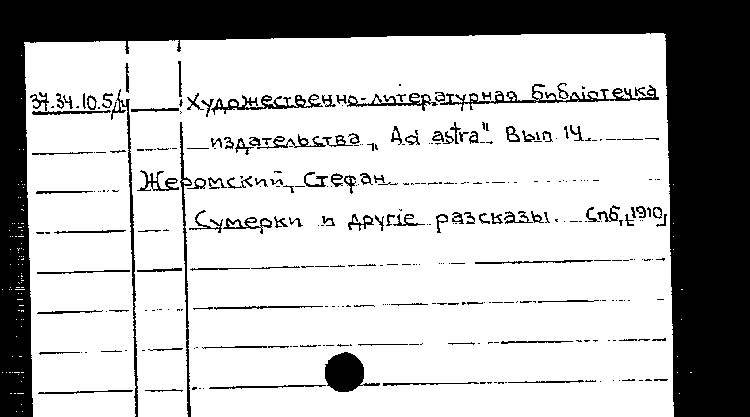 37.34.10.5/14 Художественно-литературная библіотечка
издательства „Ad astra" Вып 14.
Жеромский, Стефан.
Сумерки и другіе разсказы. Спб, [1910]